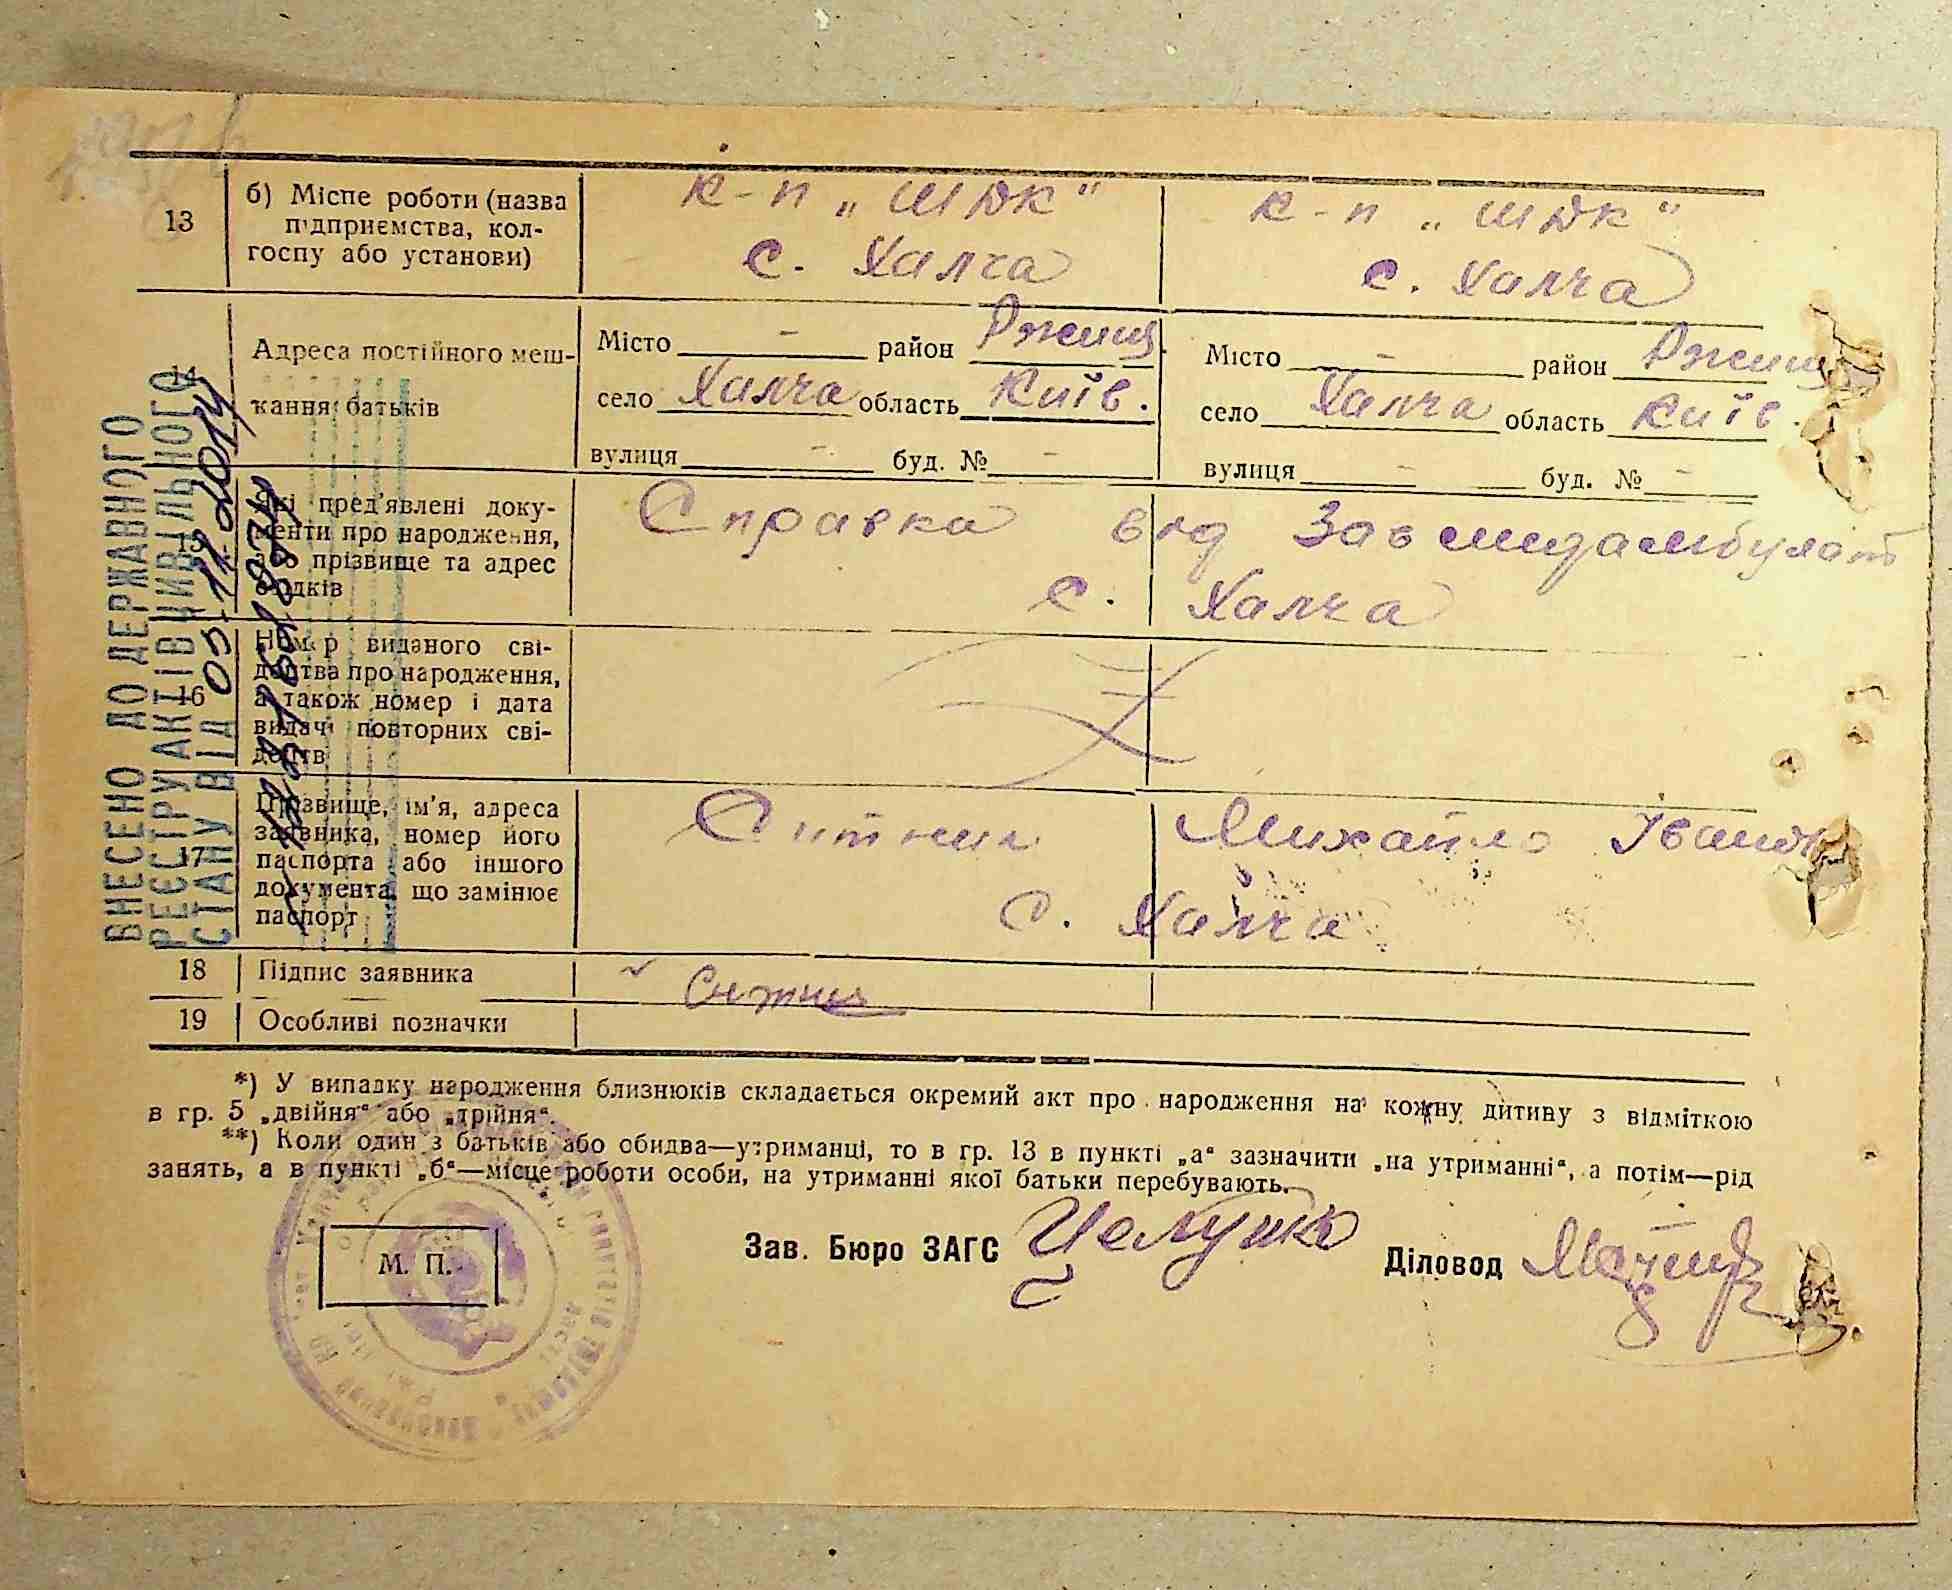 13
б) Місце роботи (назва підприємства, колгоспу або установи)
к-п „ШДК“
с. Халча
к-п „ШДК“
с. Халча
14
Адреса постійного мешкання батьків
Місто - район Ржищ.
село Халча область Київ.
вулиця - буд. № -
Місто - район Ржищ
село Халча область Київ.
вулиця - буд. № -
15
Які пред'явлені документи про народження, їх прізвище та адрес свідків
Справка від Завмедамбулат
с. Халча
16
Номер виданого свідоцтва про народження, а також номер і дата видачі повторних свідоцтв
17
Прізвище, ім'я, адреса заявника, номер його паспорта або іншого документа, що замінює паспорт
Ситник Михайло Іванов
с. Халча
18
Підпис заявника
Ситник
19
Особливі позначки
*) У випадку народження близнюків складається окремий акт про народження на кожну дитину з відміткою
в гр. 5 „двійня“ або „трійня“.
**) Коли один з батьків або обидва—утриманці, то в гр. 13 в пункті „а“ зазначити „на утриманні“, а потім—рід
занять, а в пункті „б“—місце роботи особи, на утриманні якої батьки перебувають.
М. П.
Зав. Бюро ЗАГС
Діловод
ВНЕСЕНО ДО ДЕРЖАВНОГО
РЕЄСТРУ АКТІВ ЦИВІЛЬНОГО
СТАНУ ВІД 03.12.2014